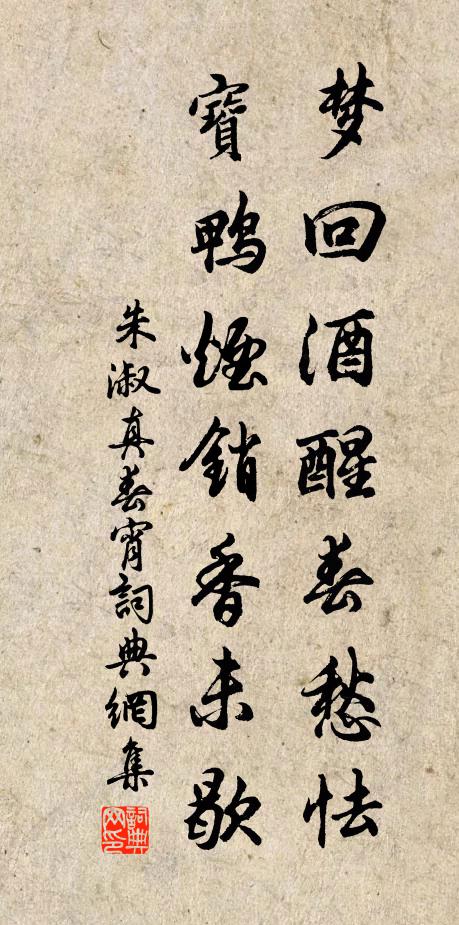 梦回酒醒春愁怯
寶鴨煙銷香未歇
朱淑真春宵詞典網集
詞典網印